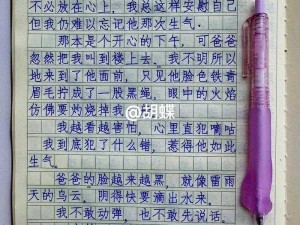 不必放在心上，我总这样安慰自己
但我仍难以忘记他那次生气。
那本是个开心的下午，可爸爸
忽然把我叫到楼上去。我不明所以
地来到了他面前，只见他脸色铁青
眉毛拧成了一股黑绳，眼中的火焰
仿佛要灼烧掉我。
@胡蝶
我越看越害怕，心里直犯嘀咕
我到底犯了什么错，惹得他如此
生气。
爸爸的脸越来越黑，就像雷雨
天的乌云，阴得快要滴出水来。
我不敢动弹，也不敢先说话。